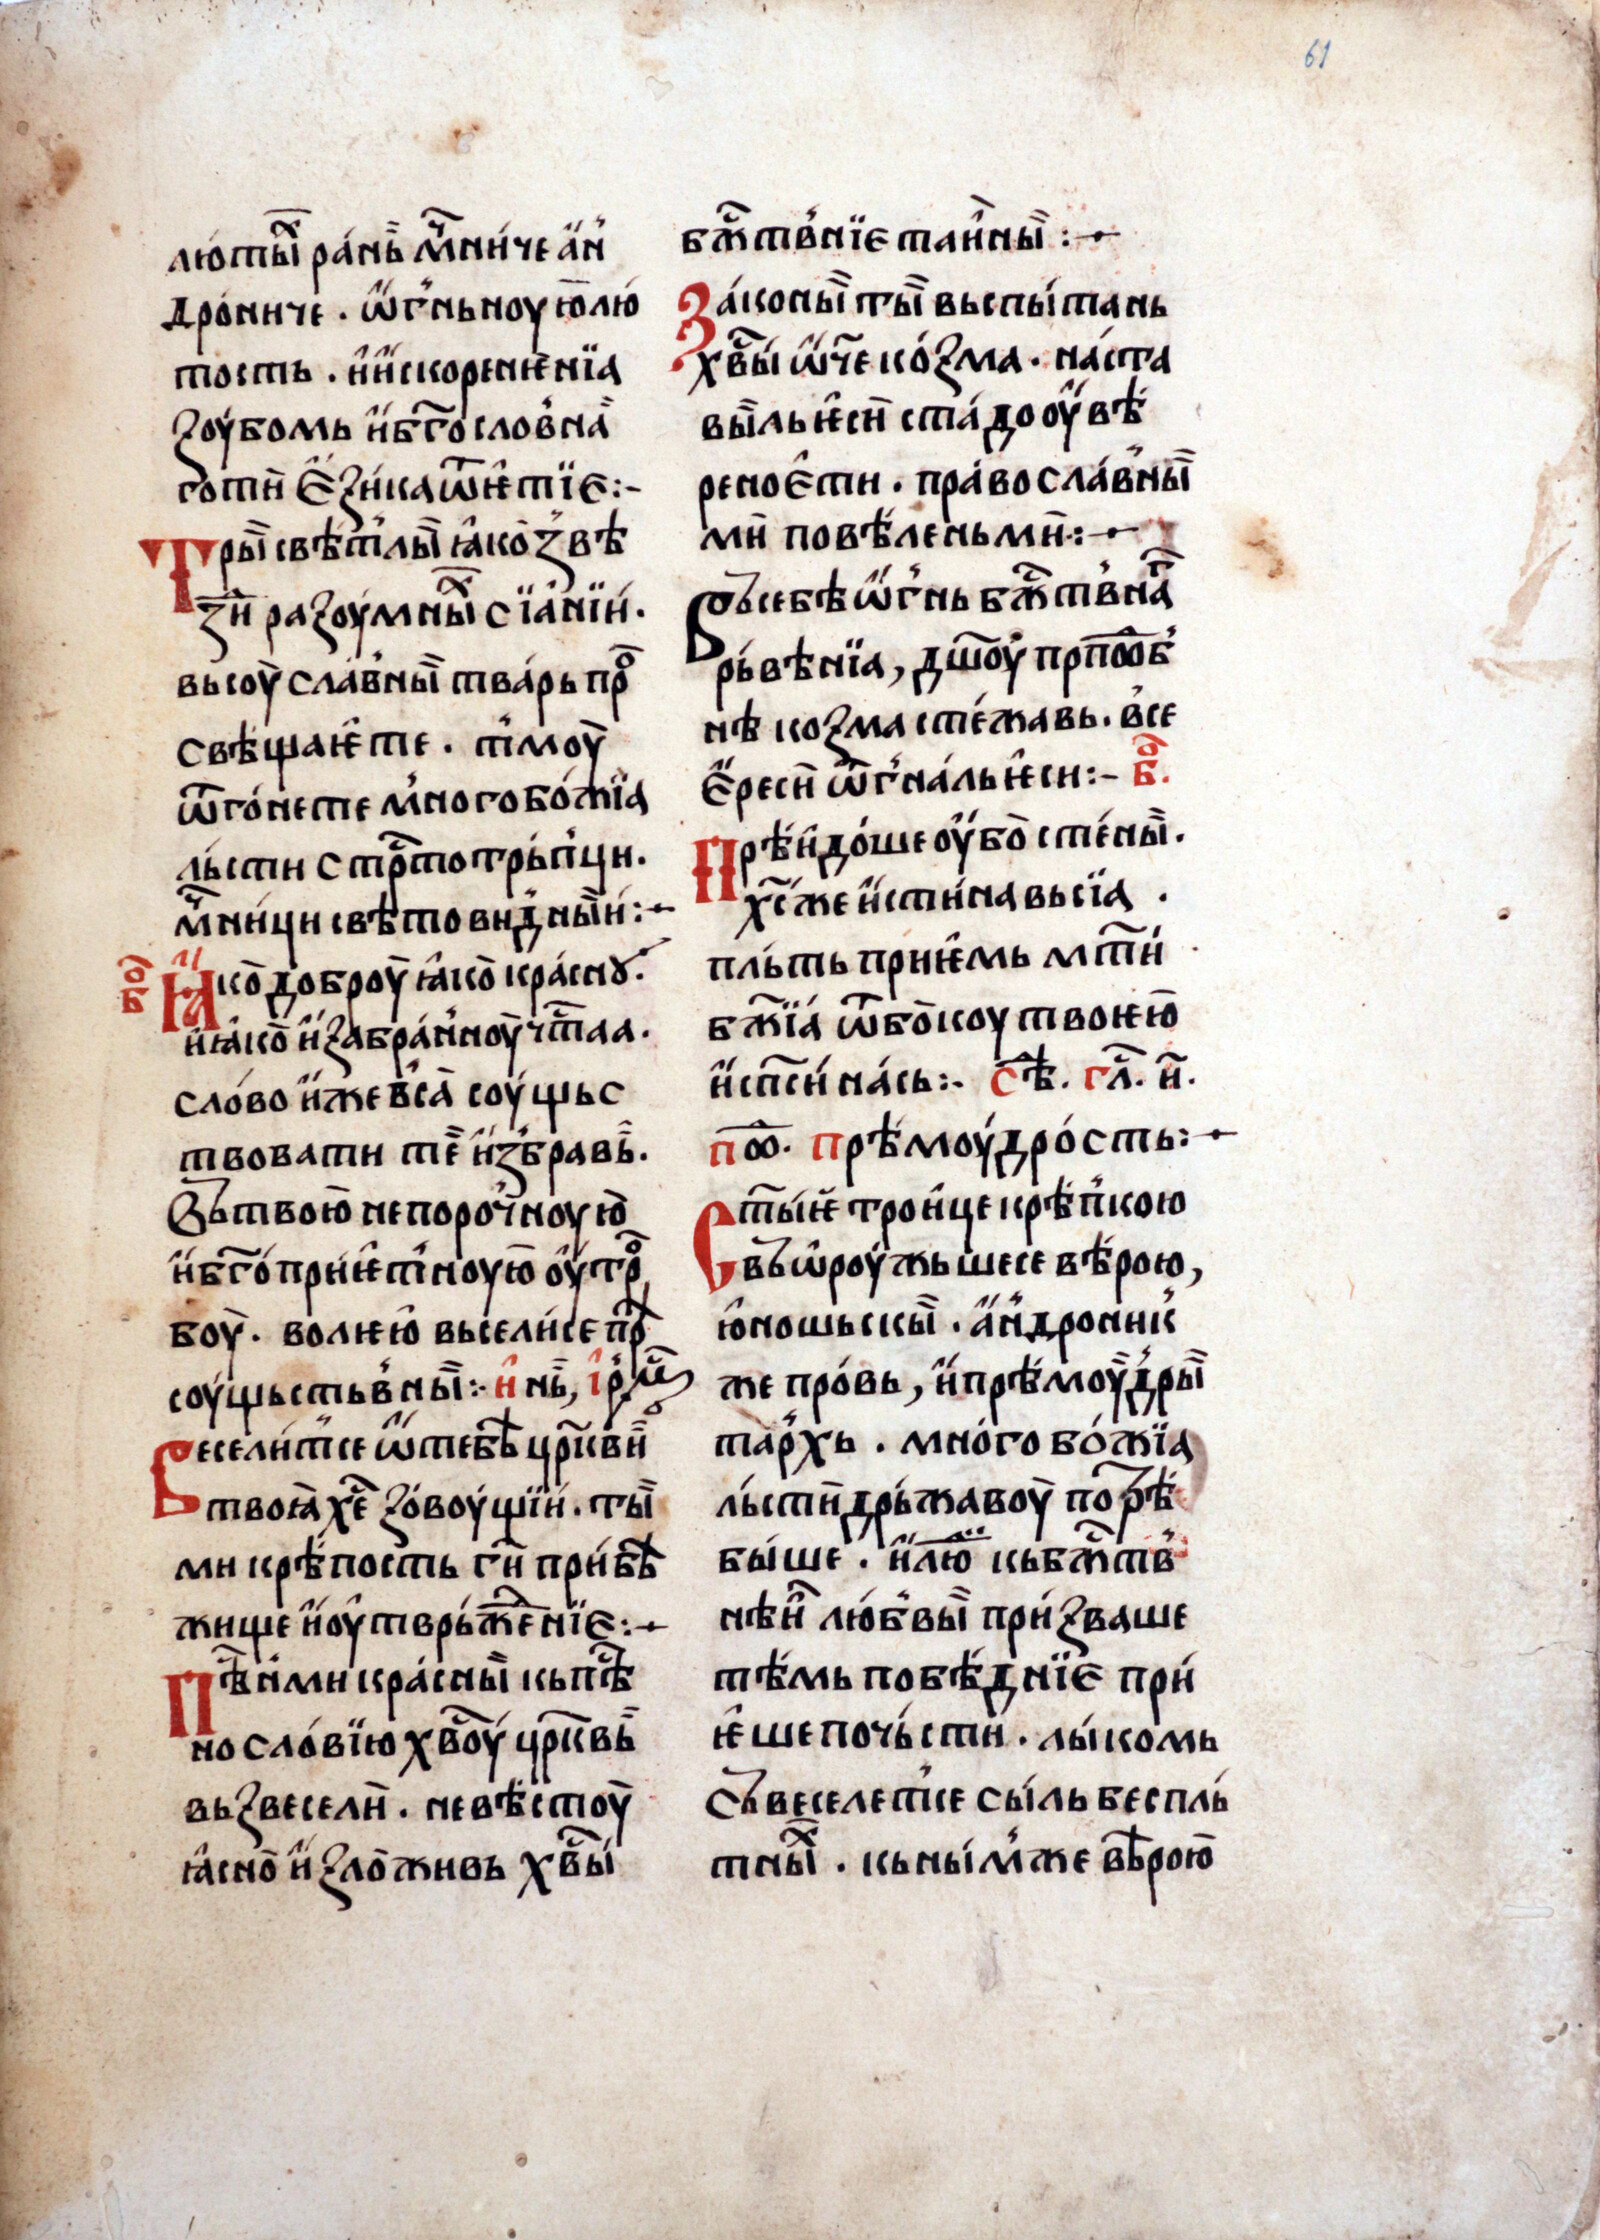 61
лю́ты̏хь ра́нь м҃нїче а̓н
дро́ниче . ѿг҆нь ноу ю҆ лю́
тость . и҆ и҆скорѥнѥнїа
ꙁоу́бомь и҆ бг҃ословна̀
готи̏ ѥ҆ꙁи́ка ѿѥ҆тїе:-
Тры̏ свѣ́тлы̏ ꙗ҆ко ꙁ̓вѣ
ꙁи̏ раꙁоу́мны̏х сїа́нїи́ .
въсоу̀ сла́вны̏ тва́рь прⷪ
свѣщаѥ҆те . т҆моу̀
ѿго́нете мно́гобо́жїа
льсти стрⷭтотрь́п҆ци .
мⷱ҃ни́ци свѣтовид҆ны̏и́:-
бⷪ
Ꙗ҆ко̀ доброу̀ ꙗ҆ко̀ кра́снꙋ̀ .
и ꙗ҆ко̀ и҆ꙁабра́н҆ноу̀ чⷭ҇таа .
сло́во и҆же вса̀ соу́щьс
твовати те̏ и҆ꙁ҆бравь̏ .
въ твою̀ непоро́ч҆ноу ю̀
и҆ бг҃о́приѥ҆т҆ноую̀ ѹ҆трⷪ
боу̀ . волѥю̀ въсели́се прⷣ
соу́щьствны̏:- и҆ нь̏, і҆рⷨ
Весели́т҆се ѿ тебѣ̀ цр҃кви̏
твоꙗ̀ хⷭ҇е ꙁовоу́щїи́ . ты̏
ми крѣ́пость ги̏ при́бѣ̀
жище и҆ оу҆тврьжⷣе́нїе:-
Пѣⷭ҇н҆ми кра́сны̏ къ пⷭ҇ѣ
носло́вїю хв҃оу́ цр҃квь̏
въꙁвесели̏ . невѣ́стоу̀
ꙗ҆сно̀ и҆ꙁло̀живь хв҃ы́
бжⷭ҇твнїе таи́ны̏ :-
Ꙁа́коны̏ ты̏ въспы́тань
хв҃ы́ ѿч҃е ко́ꙁма . на́ста
вы̏ль ѥ҆си̏ ста́до оу҆вѣ́
рено е҆сти . пра́восла́вны̏
ми̏ повѣ́леньми̏:-
Въ себѣ ѿг҆нь бжⷭ҇твнаⷢ
рьвѣнїа, дш҃оу́ прпⷪбⷣ
нѣ коꙁма сте́жавь . в҆се
е҆реси̏ ѿг҆на́ль ѥ҆си:- бⷪ.
Прѣи́до́ше оу҆бо̀ сте́ны̏ .
хс҃же и҆сти́на въсїа .
пль́ть приѥ҆мь мт҃и́
бж҃їа́ ѿ бо̀коу твоѥю̀
и҆ сп҃си́ на́сь:- сѣⷣ. гл҃. и҃.
поⷣ. Прѣмоу́дро́сть:-
Ст҃ы́ѥ тро́ице крѣ́п҆кою
въѡ҆роу́жьшесе вѣ́рою,
ю҆ношьскы̏ . а҆н҆дроник҆
же про́вь, и҆ прѣмоу̀д҆ры̏
та́р҆хь . мно́гобо́жїа
льсти̏ дрь́жавоу̀ поⷢрѣ
бы́ше . и҆ лю̏ къ бжⷭ҇тв
нѣи̏ лю́бвы̏ при́ꙁваше
тѣ́мь побѣ́днїе при́
ѥ҆ше почь́сти̏ . лы́комь
съвеселет҆се сы́ль беспль́
тны̏х . къ ны́м҆же вѣрою̀